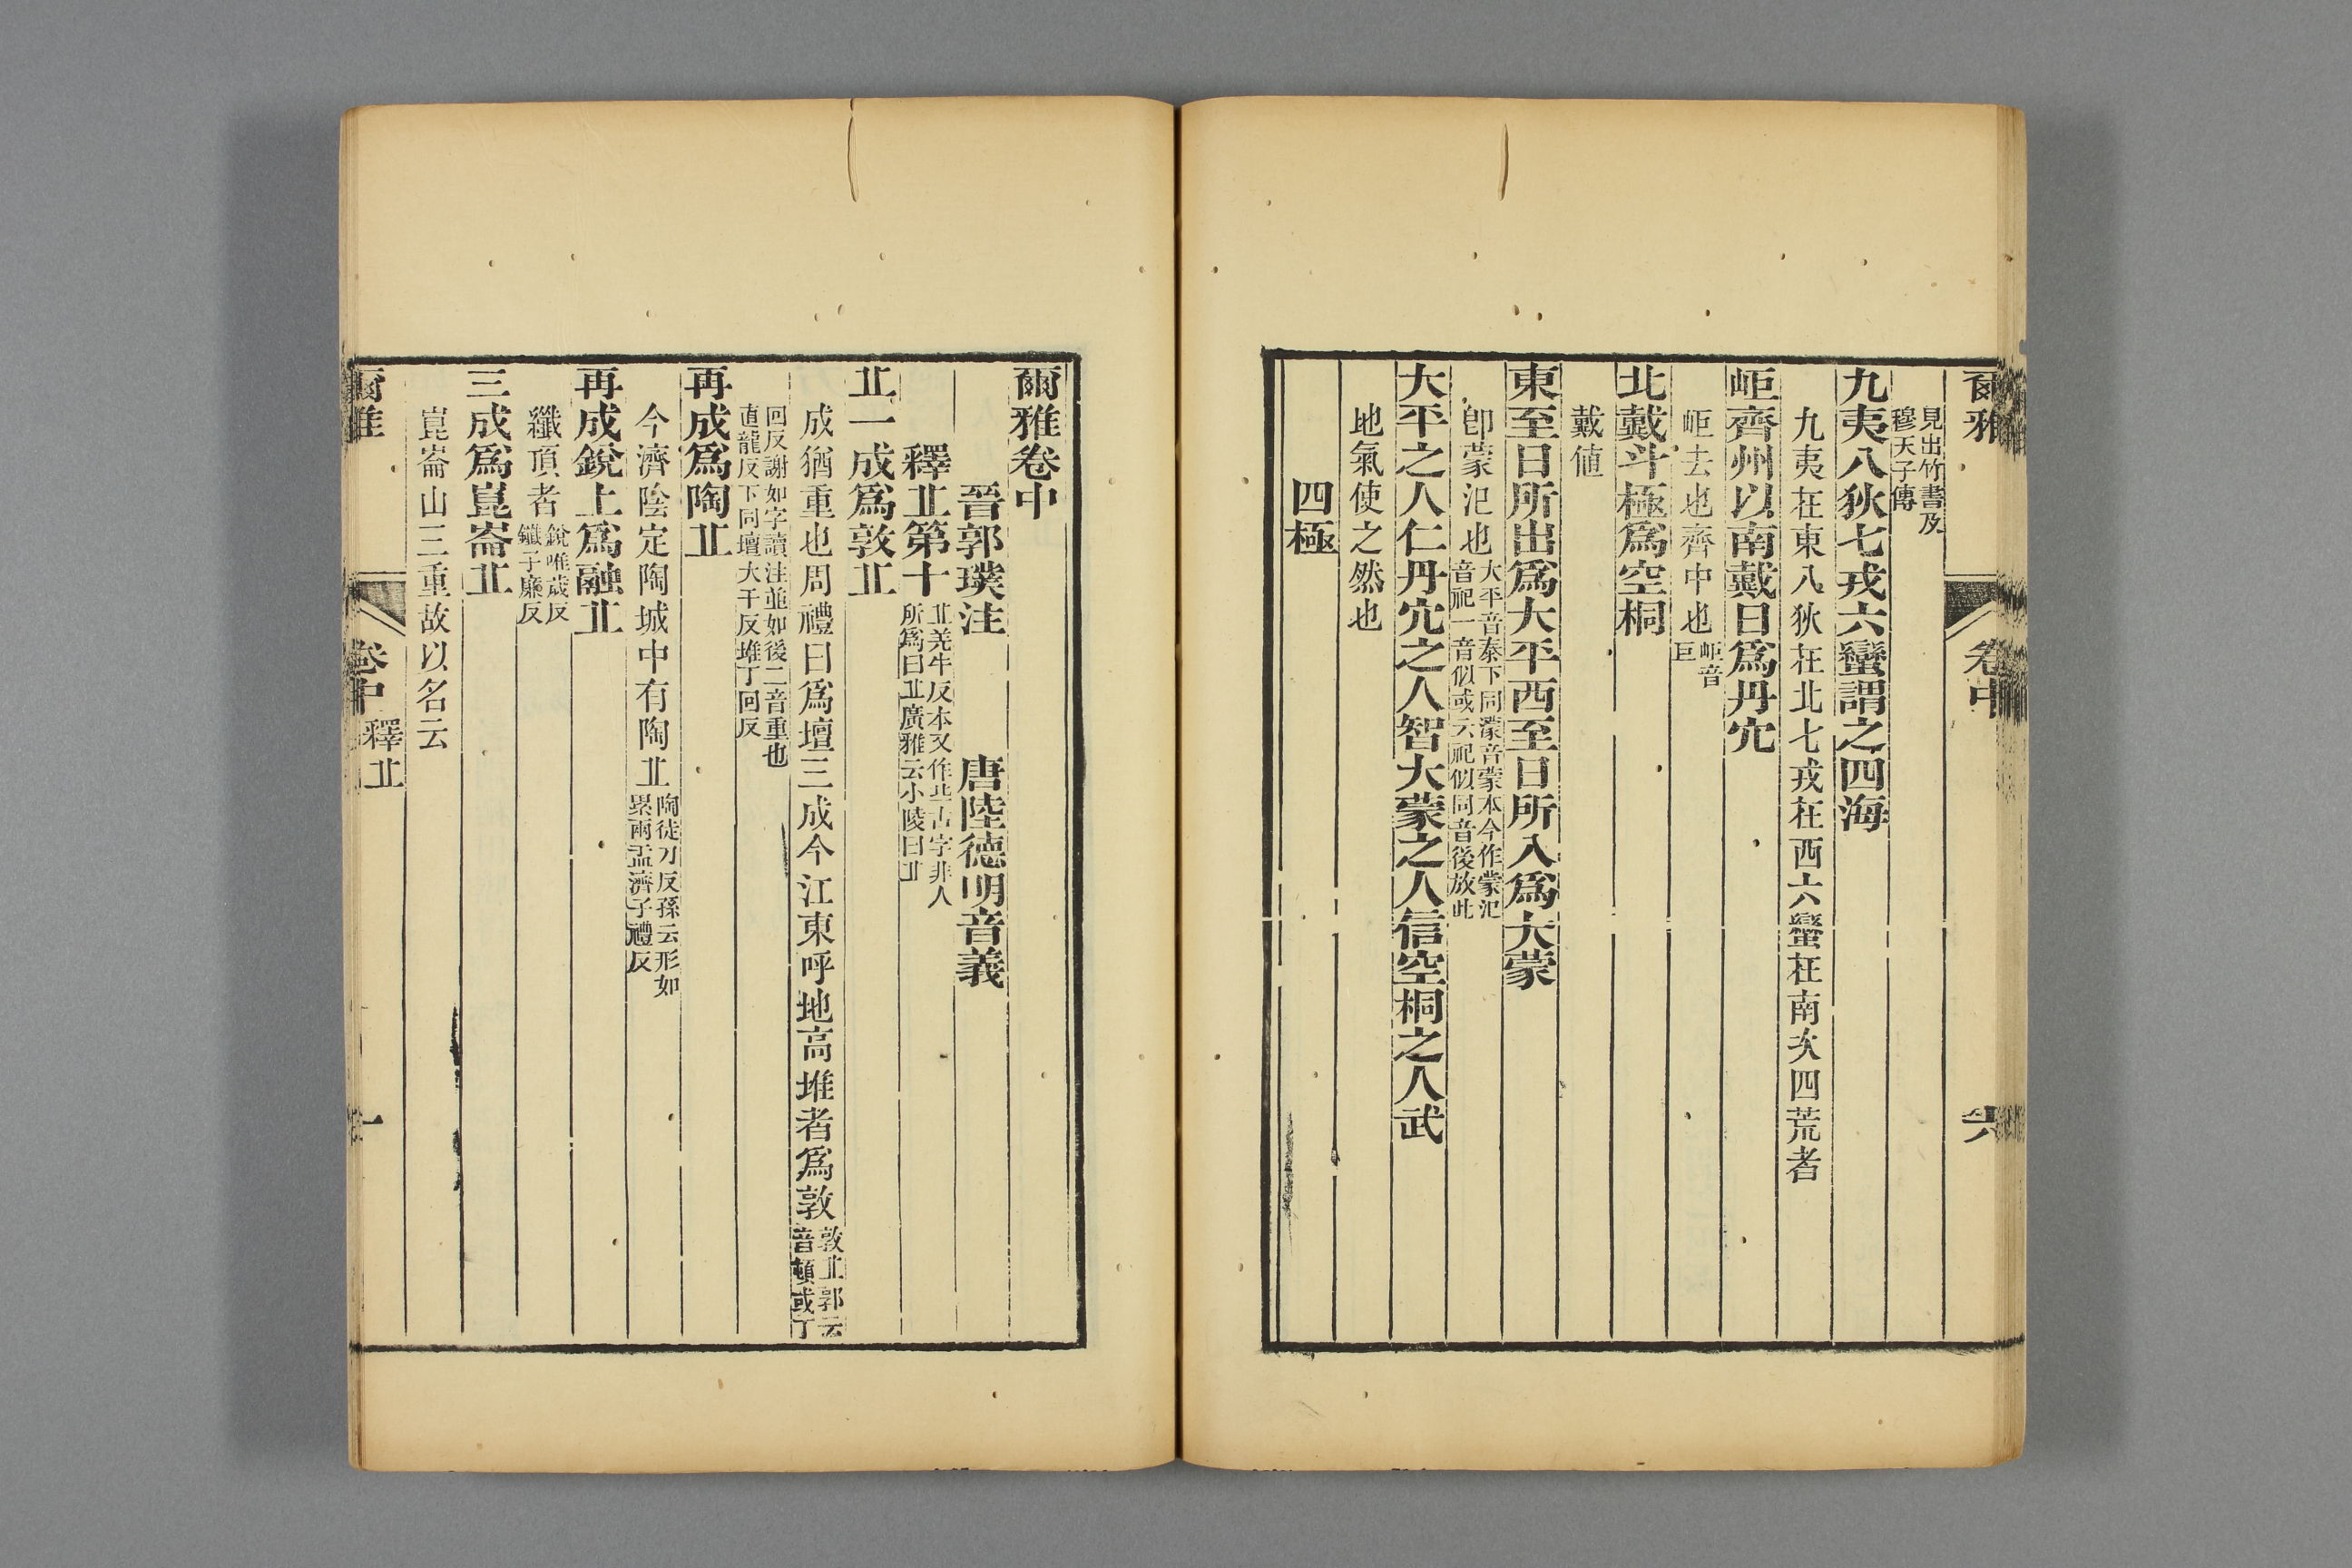 爾雅
卷中
六
見出竹書及
穆天子傳
九夷八狄七戎六蠻謂之四海
九夷在東八狄在北七戎在西六蠻在南次四荒者
岠齊州以南戴日爲丹穴
岠去也齊中也岠音
巨
北戴斗極爲空桐
戴値
東至日所出爲大平西至日所入爲大蒙
卽蒙汜也大平音泰下同濛音蒙本今作蒙汜
音祀一音似或云祀似同音後放此
大平之人仁丹穴之人智大蒙之人信空桐之人武
地氣使之然也
四極
爾雅卷中
晉郭璞注
唐陸德明音義
釋丠第十丠羌牛反本又作丘古字非人
所爲曰丠廣雅云小陵曰丠
丠一成爲敦丠
成猶重也周禮曰爲壇三成今江東呼地高堆者爲敦敦丠郭云
音頓或丁
回反謝如字讀注並如後二音重也
直龍反下同壇大干反堆丁回反
再成爲陶丠
今濟陰定陶城中有陶丠陶徒刀反孫云形如
累兩盂濟子禮反
再成銳上爲融丠
纖頂者銳唯歲反
鐵子廉反
三成爲崑崙丠
崑崙山三重故以名云
爾雅
卷中
釋丠
一